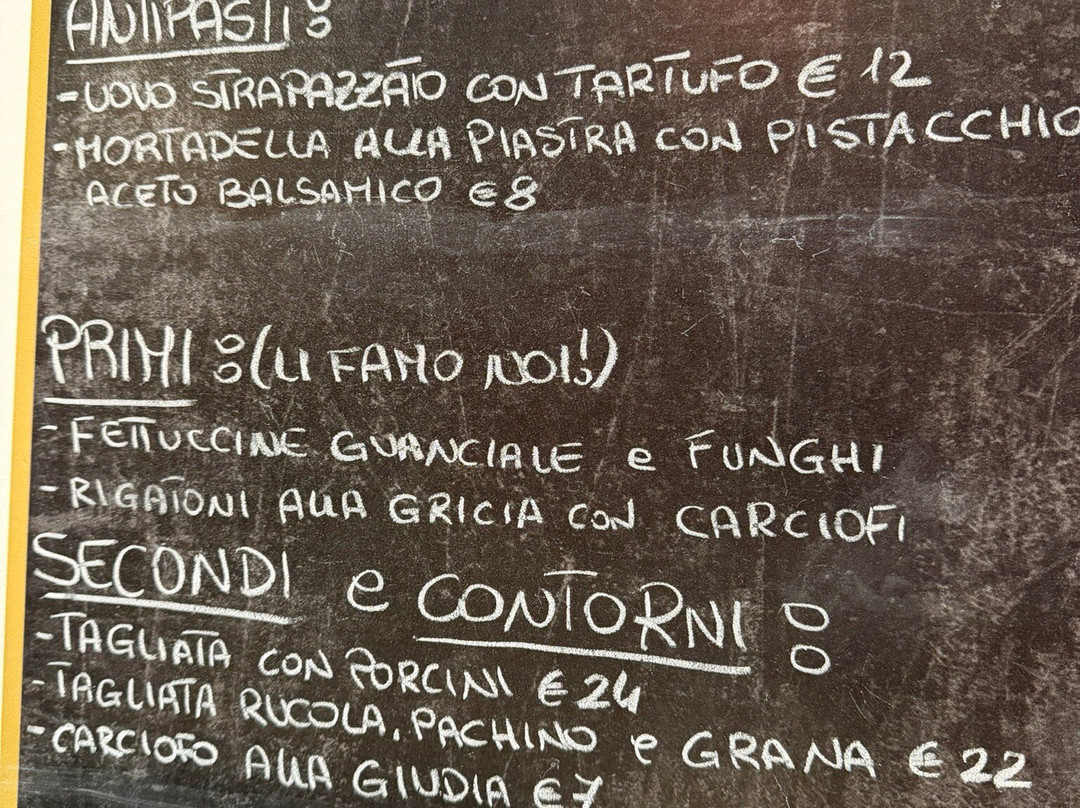 ANTIPASTI:
-UOVO STRAPAZZATO CON TARTUFO € 12
-MORTADELLA ALLA PIASTRA CON PISTACCHIO
ACETO BALSAMICO €8
PRIMI:(LI FAMO NOI!)
-FETTUCCINE GUANCIALE e FUNGHI
-RIGATONI ALLA GRICIA CON CARCIOFI
SECONDI e CONTORNI:
-TAGLIATA CON PORCINI €24
-TAGLIATA RUCOLA, PACHINO e GRANA €22
-CARCIOFO ALLA GIUDIA €7